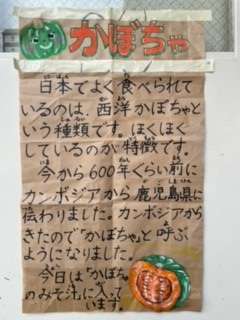 かぼちゃ
日本でよく食べられて
いるのは、西洋かぼちゃと
いう種類です。ほくほく
しているのが特徴です。
今から600年ぐらい前に
カンボジアから鹿児島県に
伝わりました。カンボジアから
きたので「かぼちゃ」と呼ぶ
ようになりました。
今日は「かぼちゃ
のみそ汁」に入って
います。